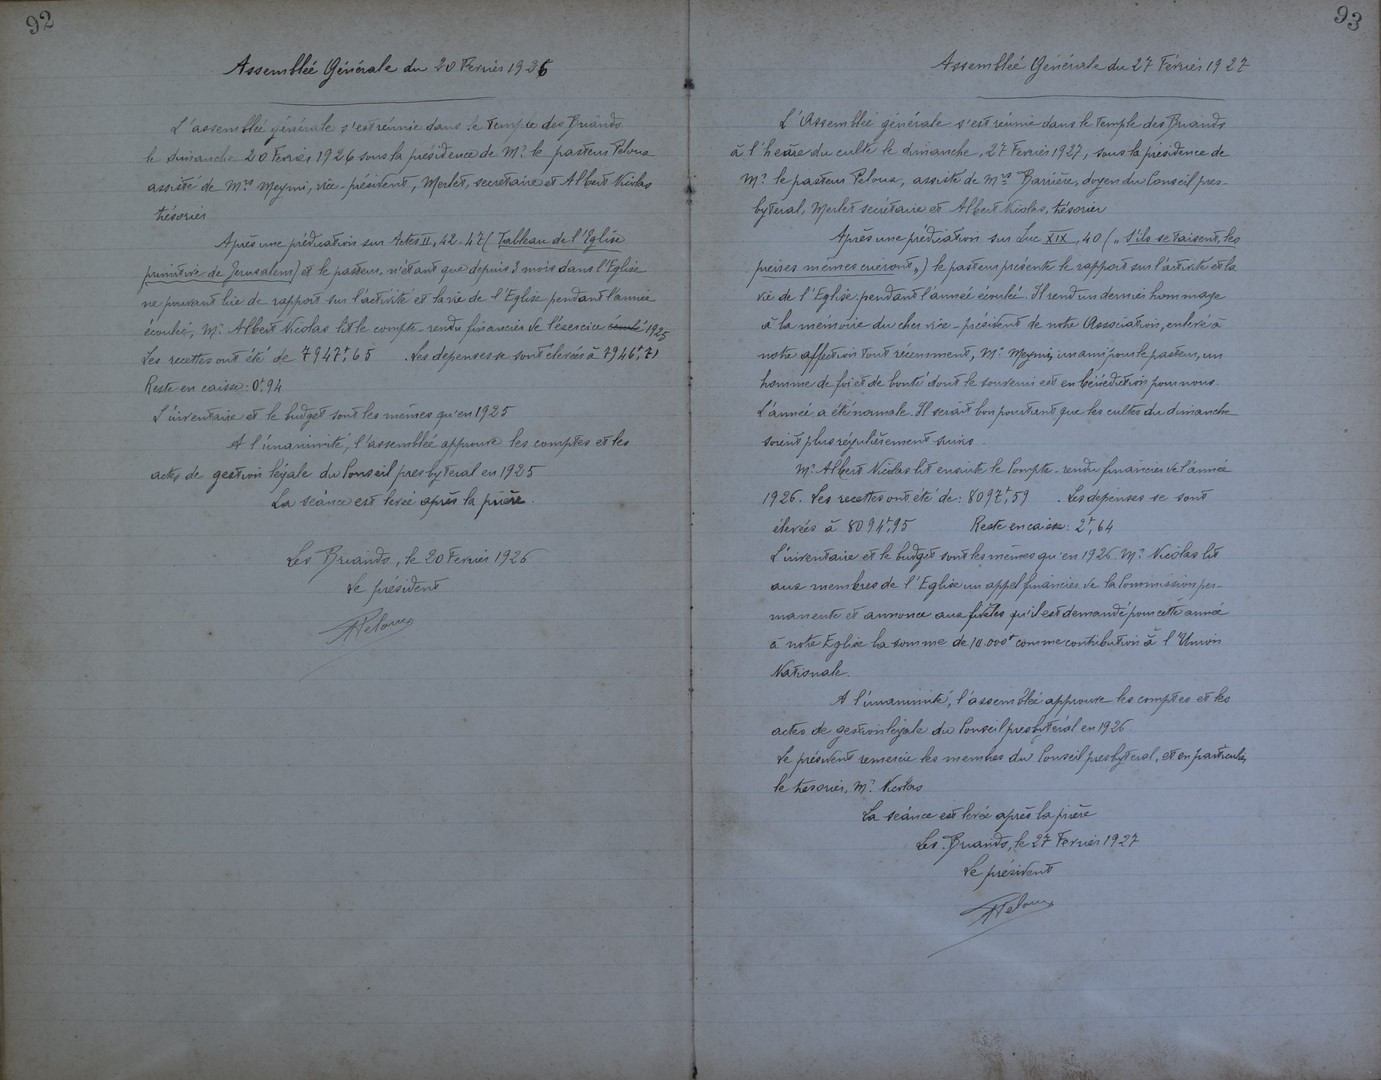 92
Assemblée Générale du 20 Fevrier 1926
L'assemblée générale s'est réunie dans le Temple des Briands
le dimanche 20 Fevrier 1926 sous la présidence de Mr. le pasteur Peloux
assisté de Mrs Meyni, vice-président, Merlet, secrétaire et Albert Nicolas
trésorier
Après une prédication sur Actes II, 42-47 (Tableau de l'Eglise
primitive de Jerusalem) et le pasteur, n'étant que depuis 3 mois dans l'Eglise
ne pouvant lire de rapport sur l'activité et la vie de l'Eglise pendant l'année
écoulée, Mr. Albert Nicolas lit le compte-rendu financier de l'exercice écoulé 1925
Les recettes ont été de 7947f,65 . Les depenses se sont élevées à 7946f,71
Reste en caisse: 0f,94
L'inventaire et le budget sont les mêmes qu'en 1925
A l'unanimité, l'assemblée approuve les comptes et les
actes de gestion légale du Conseil presbytéral en 1925
La séance est levée après la prière.
Les Briands, le 20 Fevrier 1926
Le président
Peloux
93
Assemblée Générale du 27 Février 1927
L'Assemblée générale s'est réunie dans le Temple des Briands
à l'heure du culte le dimanche, 27 Fevrier 1927, sous la présidence de
Mr. le pasteur Peloux, assisté de Mrs Barrière, doyen du Conseil pres-
bytéral, Merlet secrétaire et Albert Nicolas, trésorier
Après une prédication sur Luc XIX, 40 („ S'ils se taisent, les
pierres mêmes crieront„) le pasteur présente le rapport sur l'activité et la
vie de l'Eglise pendant l'année écoulée. Il rend un dernier hommage
à la mémoire du cher vice-président de notre Association, enlevé à
notre affection tout récemment, Mr. Meyni, un ami pour le pasteur, un
homme de foi et de bonté dont le souvenir est en bénédiction pour nous.
L'année a été normale. Il serait bon pourtant que les cultes du dimanche
soient plus régulièrement suivis.
Mr. Albert Nicolas lit ensuite le Compte-rendu financier de l'année
1926. Les recettes ont été de: 8097f,59 . Les depenses se sont
élevées à 8094f,95 Reste en caisse: 2f,64
L'inventaire et le budget sont les mêmes qu'en 1926. Mr. Nicolas lit
aux membres de l'Eglise un appel financier de la Commission per-
manente et annonce aux fidèles qu'il est demandé pour cette année
à notre Eglise la somme de 10.000f comme contribution à l'Union
Nationale.
A l'unanimité, l'assemblée approuve les comptes et les
actes de gestion légale du Conseil presbytéral en 1926
Le président remercie les membres du Conseil presbyteral, et en particulier
le tresorier, Mr. Nicolas
La séance est levée après la prière
Les Briands, le 27 Fevrier 1927
Le président
Peloux